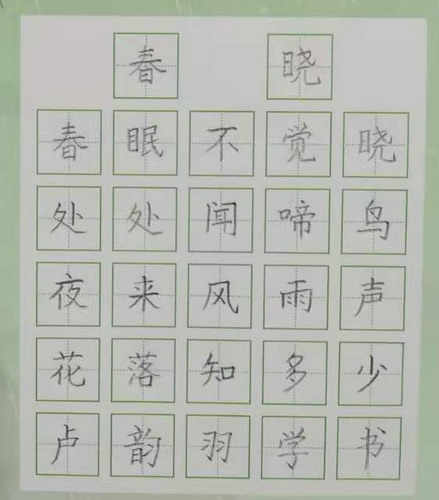 春晓
春眠不觉晓
处处闻啼鸟
夜来风雨声
花落知多少
卢韵羽学书